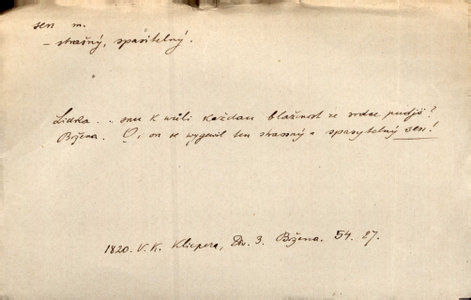 sen m.
– strašný, spasitelný.
Lidka . . snu k wůli každau blažnost ze srdce pudjš?
Božena. O, on se wygewil ten strassný a spasytelný sen!
1820. V. K. Klicpera, Div. 3. Božena. 54. 27.